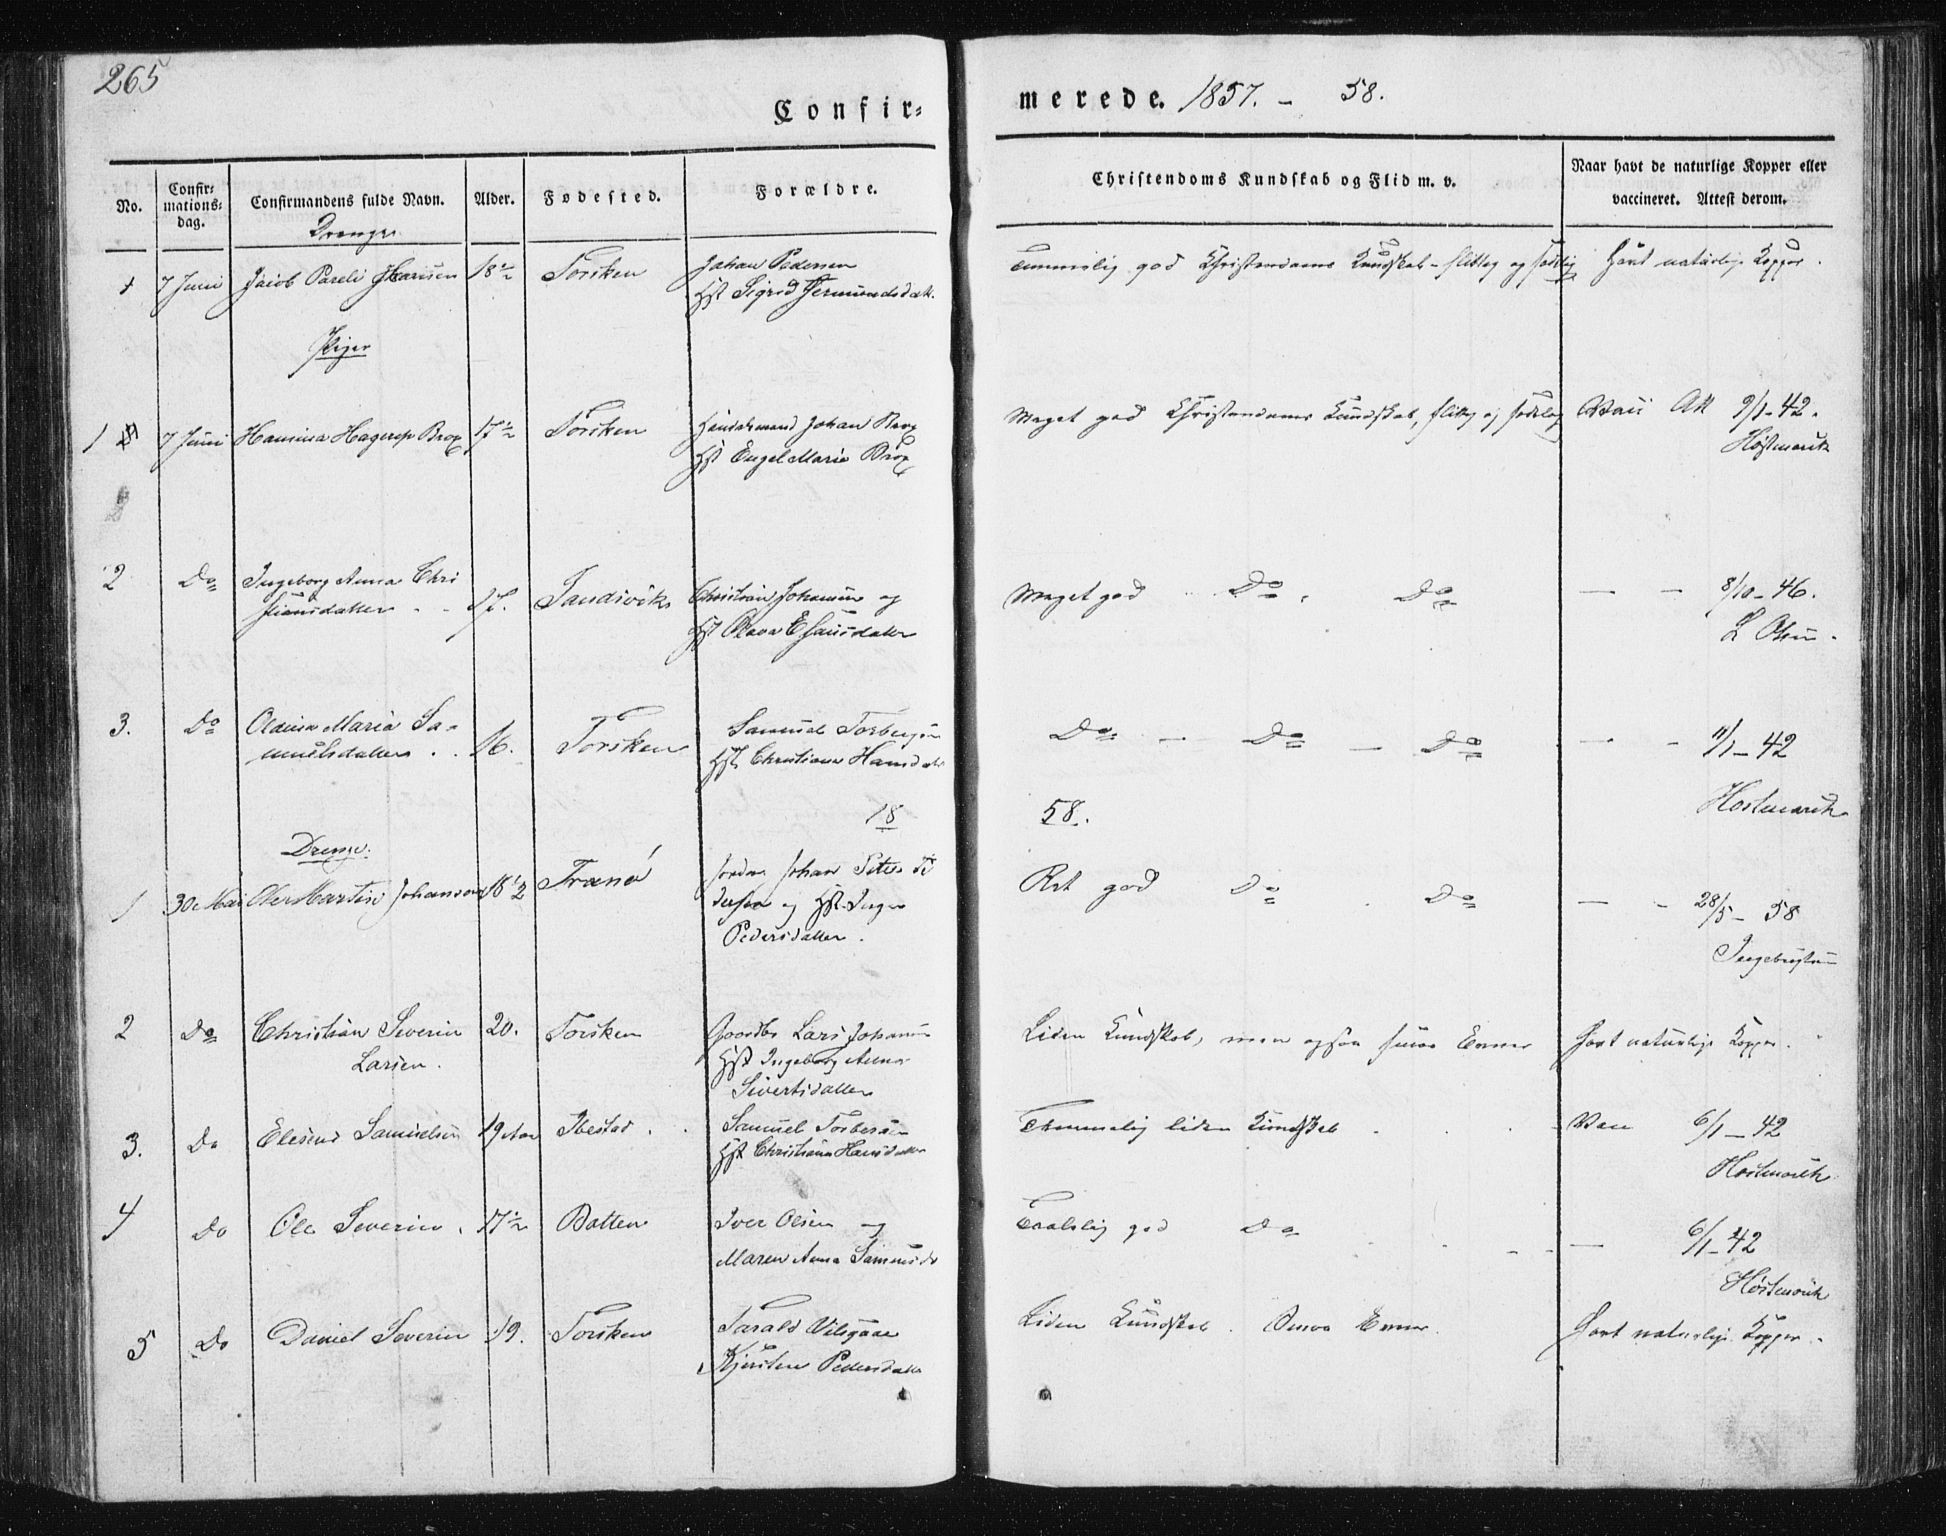 265
Confir-
merede. 1857. - 58.
No.
Confir-
mations-
dag.
Confirmandens fulde Navn.
Alder.
Fødested.
Forældre.
Christendoms Kundskab og Flid m. v.
Naar havt de naturlige Kopper eller
vaccineret. Attest derom.
Drenge
1 7 Juni Jacob Pareli 18½ Torsken Johan Pedersen
Hst Sigrid
god Christendoms Kundskab - flittig og sædelig Havt naturlige Kopper.
Piger
1 7 Juni Hansina Hagerup Brox 17½ Torsken Johan Brox
Hst Engel Maria Brox
Meget god Christendoms Kundskab, flittig og sædelig Vacc Att 9/1-42.
Høstmark
2 Do Ingeborg Anna Chri
stiansdatter 17. Sandsvik Christian Johansen og
Hst Olava Esaiasdatter
Meget god Do Do — — 8/10-46.
L Olsen
3. Do Olavina Maria Sa-
muelsdatter 16. Torsken Samuel Torbergsen
Hst Christiana Hansdatr
Do — Do — Do — - 11/1-42
Høstmark
18
58.
Drenge.
1 30 Mai Ole Martin Johansen 18½ Tranø Johan Peter Pe
dersen og Hst Inger
Pedersdatter.
Ret god Do Do — - 28/5-58
Ingebrigtsen
2 Do Christian Severin
Larsen. 20. Torsken Gaardbr Lars Johansen
Hst Ingeborg Anna
Sivertsdatter
Liden Kundskab, men ogsaa smaa Evner Havt naturlige Kopper.
3. Do Eleseus Samuelsen 19 Aar Ibestad Samuel Torbersen
Hst Christiana Hansdatter
Temmelig liden Kundskab Vacc 6/1-42
Høstmark
4 Do Ole Severin 17½ Botten Iver Olsen og
Maren Anna Samuelsdr
Taalelig god Do — 6/1-42
Høstmark
5 Do Daniel Severin 19. Torsken Tarald
Kjersten Pedersdatr
Liden Kundskab. Smaa Evner. Havt naturlige Kopper.